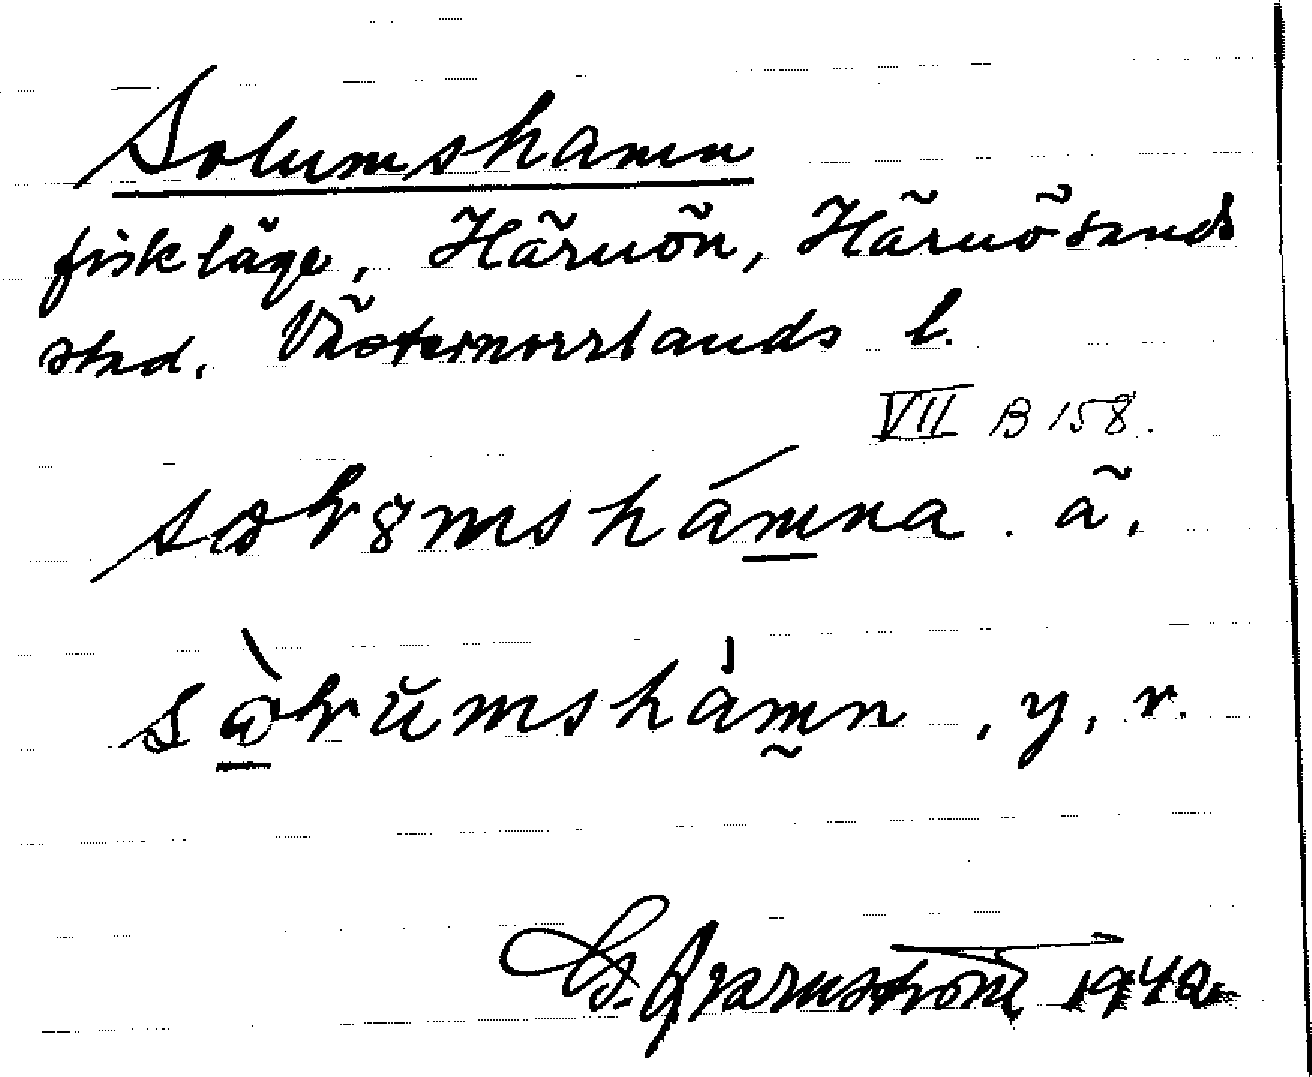 Solumshamn
fiskläge, Härnön, Härnösands
stad. Västernorrlands l.
VII B 158.
hámna. ä.
, y, r.
1942